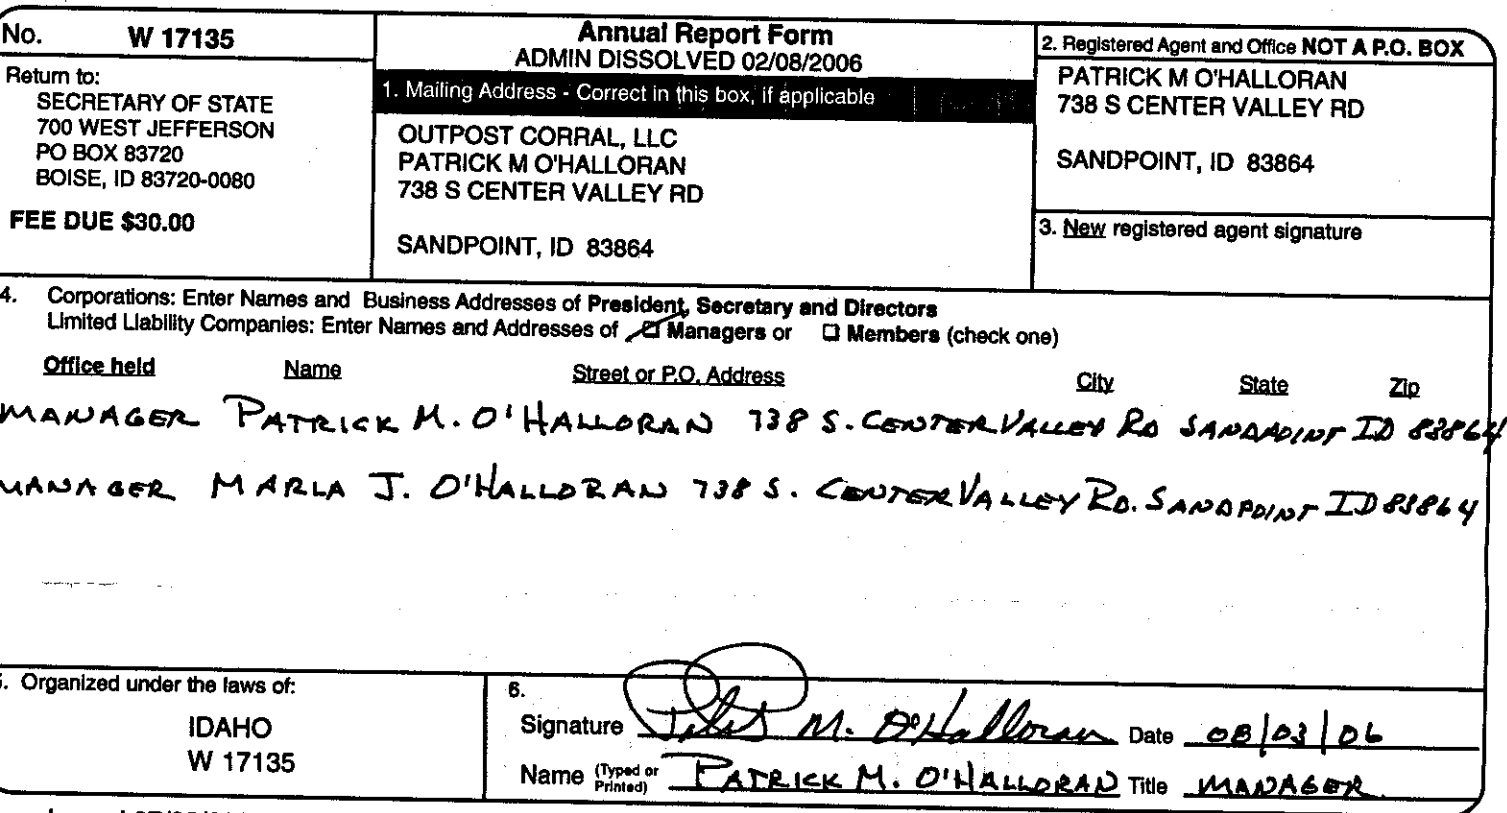 No. W 17135
Return to:
SECRETARY OF STATE
700 WEST JEFFERSON
PO BOX 83720
BOISE, ID 83720-0080
FEE DUE $30.00
Annual Report Form
ADMIN DISSOLVED 02/08/2006
1. Mailing Address - Correct in this box, if applicable
OUTPOST CORRAL, LLC
PATRICK M O'HALLORAN
738 S CENTER VALLEY RD
SANDPOINT, ID 83864
2. Registered Agent and Office NOT A P.O. BOX
PATRICK M O'HALLORAN
738 S CENTER VALLEY RD
SANDPOINT, ID 83864
3. New registered agent signature
4. Corporations: Enter Names and Business Addresses of President, Secretary and Directors
Limited Liability Companies: Enter Names and Addresses of Managers or Members (check one)
Office held Name Street or P.O. Address City State Zip
MANAGER PATRICK M. O'HALLORAN 738 S. CENTER VALLEY RD SANDPOINT ID 83864
MANAGER MARLA J. O'HALLORAN 738 S. CENTER VALLEY RD. SANDPOINT ID 83864
5. Organized under the laws of:
IDAHO
W 17135
6.
Signature M. O'Halloran Date 08/03/06
Name (Typed or Printed) PATRICK M. O'HALLORAN Title MANAGER